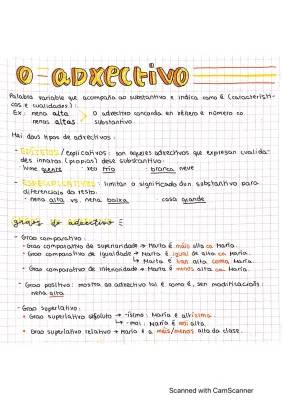 O ADXECTIVO
Palabra variable que acompaña ao substantivo e indica como é (característi-
cas e cualidades):
Ex: nena alta > O adxectivo concorda en xénero e número co
nenas altas substantivo.
Hai dous tipos de adxectivos:
- EPÍTETOS/explicativos: son aqueles adxectivos que expresan cualida-
des innatas (propias) dese substantivo:
lume quente xeo frío branca neve
- ESPECIFICATIVOS: limitar o significado dun substantivo para
diferencialo do resto.
- nena alta vs. nena baixa - casa grande
graos do adxectivo:
- Grao comparativo:
• Grao comparativo de superioridade → Marta é máis alta ca María.
• Grao comparativo de igualdade → Marta é igual de alta ca María.
↳ Marta é tan alta coma María.
• Grao comparativo de inferioridade → Marta é menos alta ca María.
- Grao positivo: mostra ao adxectivo tal e como é, sen modificacións:
nena alta
- Grao superlativo:
• Grao superlativo absoluto → -ísimo: María é altísima
↳ -moi: María é moi alta.
• Grao superlativo relativo → María é a máis/menos alta da clase.
Scanned with CamScanner